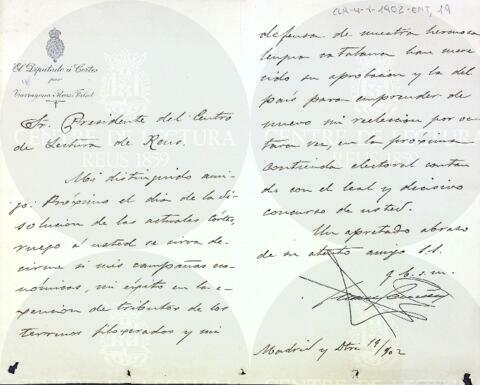 CLR-4-1-1902-ENT, 19
El Diputado á Cortes
por
Tarragona-Reus-Falset
Sr. Presidente del Centro
de Lectura de Reus.
Mi distinguido ami-
go: Proximo el dia de la di-
solucion de las actuales Córtes,
ruego á usted se sirva de-
cirme si mis campañas eco-
nómicas, mi éxito en la
de tributos de los
terrenos filoxerados y mi
defensa de nuestra hermosa
lengua catalana han mere-
cido su aprobación y la del
país para emprender de
nuevo mi reelección por oc-
tava vez, en la próxima
contienda electoral contan-
do con el leal y decisivo
concurso de usted.
Un apretado abrazo
de su atento amigo S.S.
q. b. s. m.
Madrid y 19/902
CENTRE DE LECTURA
REUS 1859
CENTRE DE LECTURA
REUS 1859